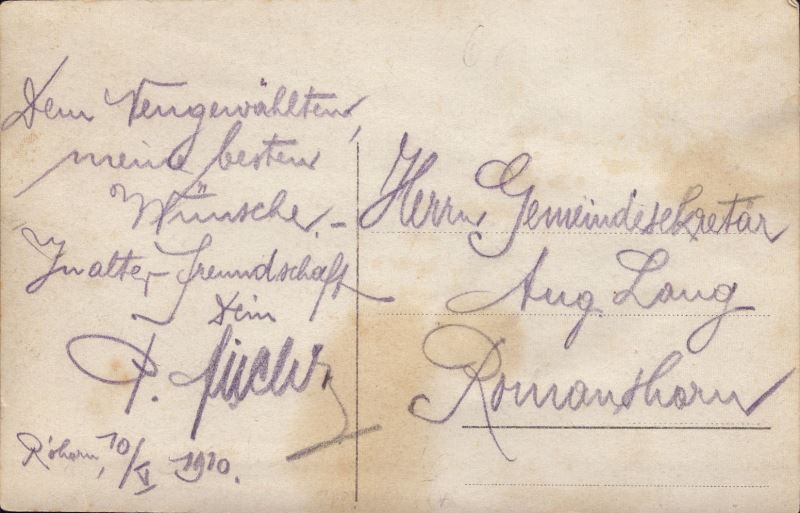 Dem Neugewählten,
meine besten
Wünsche. –
In alter Freundschaft
Dein
P.
R'horn, 10/V 1910.
Herrn Gemeindesekretär
Aug. Lang
Romanshorn